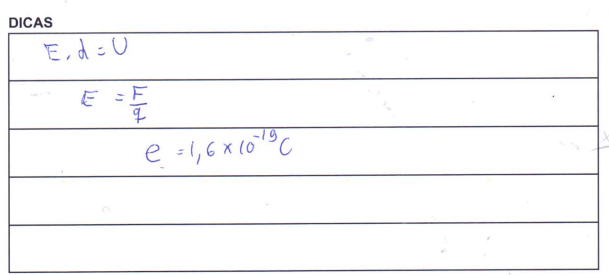 DICAS
E. d = U
E = F/q
e = 1,6 × 10⁻¹⁹ C